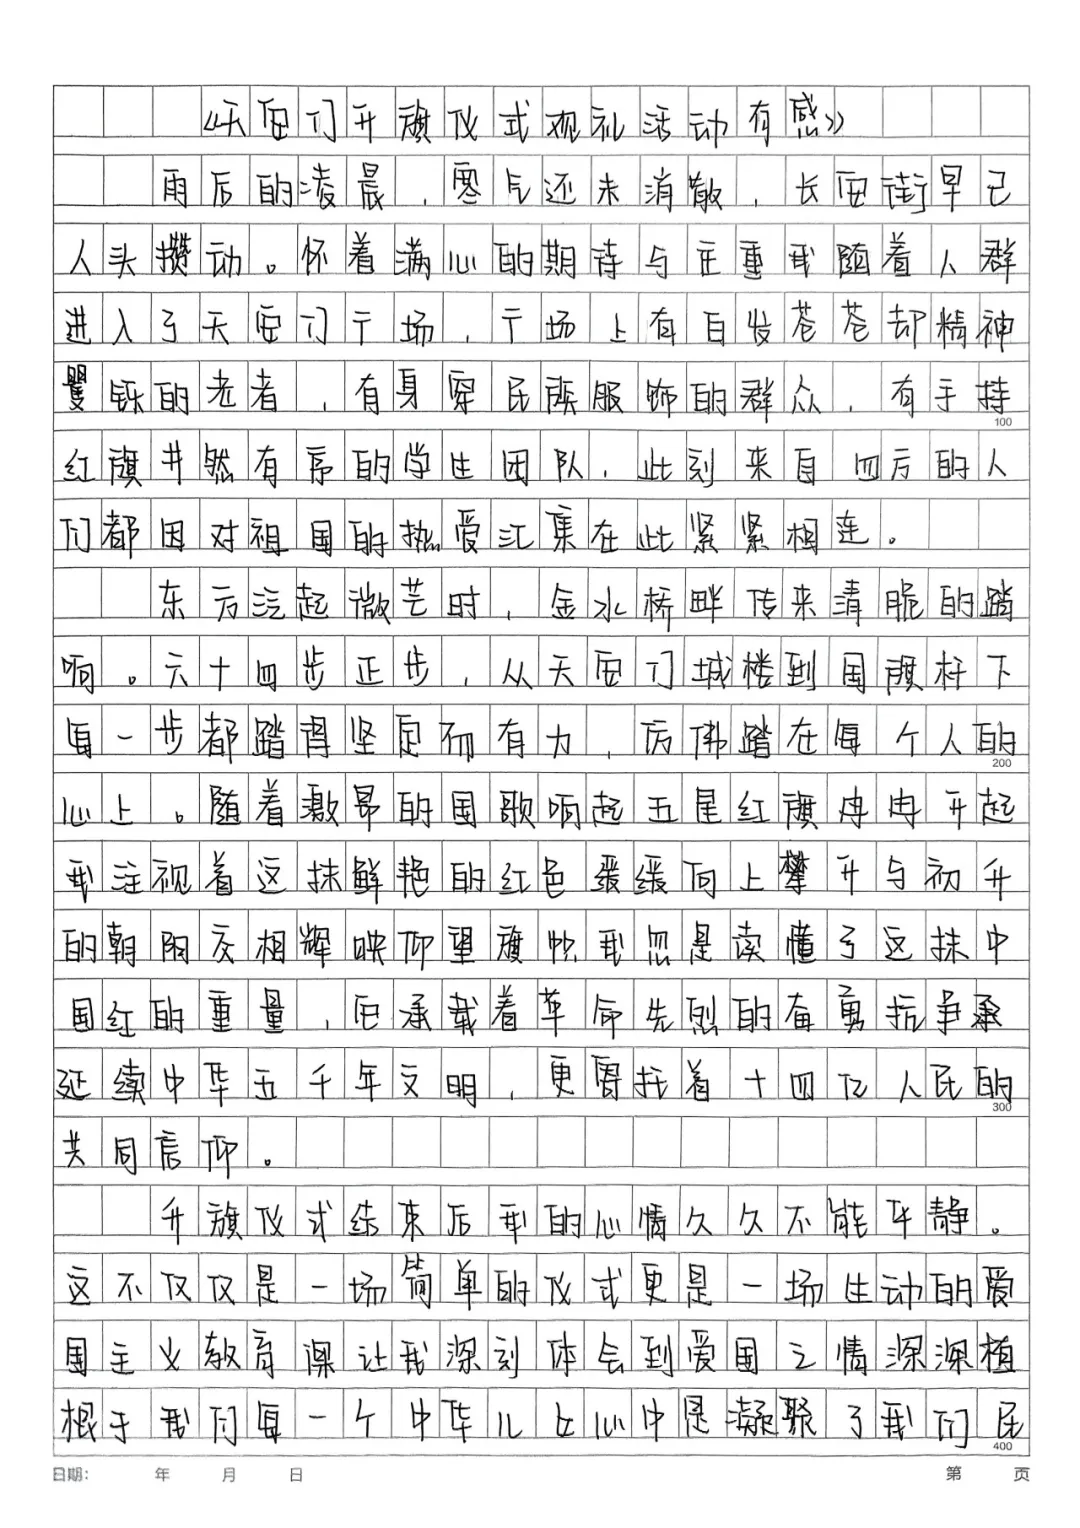 《天安门升旗仪式观礼活动有感》
雨后的凌晨，寒气还未消散，长安街早已
人头攒动。怀着满心的期待与庄重我随着人群
进入了天安门广场，广场上有白发苍苍却精神
矍铄的老者，有身穿民族服饰的群众，有手持
100
红旗井然有序的学生团队，此刻来自四方的人
们都因对祖国的热爱汇集在此紧紧相连。
东方泛起微芒时，金水桥畔传来清脆的踏
响。六十四步正步，从天安门城楼到国旗杆下
每一步都踏得坚定而有力，仿佛踏在每个人的
200
心上。随着激昂的国歌响起五星红旗冉冉升起
我注视着这抹鲜艳的红色缓缓向上攀升与初升
的朝阳交相辉映仰望旗帜我忽是读懂了这抹中
国红的重量，它承载着革命先烈的奋勇抗争承
延续中华五千年文明，更寄托着十四亿人民的
300
共同信仰。
升旗仪式结束后我的心情久久不能平静。
这不仅仅是一场简单的仪式更是一场生动的爱
国主义教育课让我深刻体会到爱国之情深深植
根于我们每一个中华儿女心中是凝聚了我们民
400
日期： 年 月 日 第 页